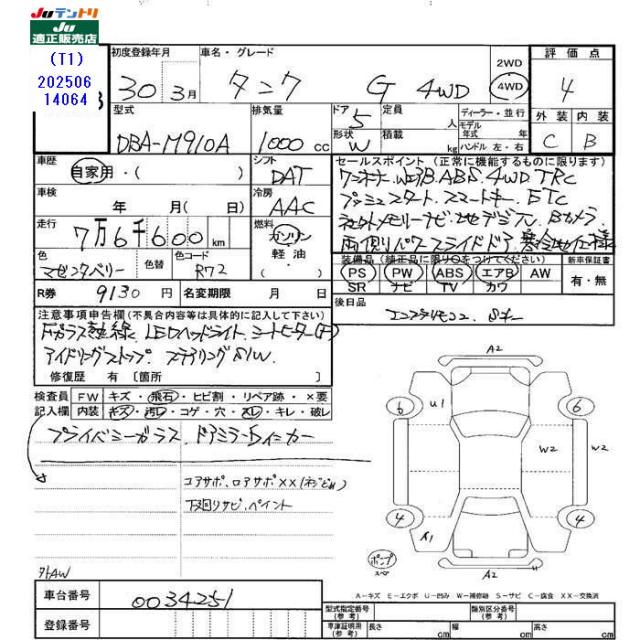 Juテントリ
Ju
適正販売店
(T1)
202506
14064
初度登録年月
30年 3月
車名・グレード
タンク G 4WD
2WD
4WD
評価点
4
外装 内装
C B
型式
DBA-M910A
排気量
1000 cc
ドア 5
形状 W
定員 人
積載 kg
ディーラー・並行
モデル年式 年
ハンドル 左・右
車歴
自家用・( )
シフト
DAT
車検
年 月( 日)
冷房
AAC
走行
7万6千600 km
燃料
ガソリン
軽油
色
マゼンタベリー
色替
色コード
R72
R券 9130円
名変期限 月 日
セールスポイント(正常に機能するものに限ります)
ワンオーナー. W エアB. ABS. 4WD. TRC
プッシュスタート. スマートキー. ETC
メモリーナビ. 地デジ Bカメラ
両側パワースライドドア. 寒冷地仕様
装備品(純正品に限り○をつけてください)
PS PW ABS エアB AW
SR ナビ TV カワ
新車保証書
有・無
後日品
エンスタリモコン.
注意事項申告欄(不具合内容等は具体的に記入して下さい)
Fガラス熱線. LEDヘッドライト. シートヒーター(F)
アイドリングストップ. ステアリングSW.
修復歴 有〔箇所 〕
検査員記入欄
FW キズ・飛石・ヒビ割・リペア跡・×要
内装 キズ・汚レ・コゲ・穴・スレ・キレ・破レ
プライバシーガラス. ドアミラーウィンカー
コアサポ. ロアサポ××(ネジどめ)
下回りサビ. ペイント
外AW
A2
U1
6
6
W2
W2
4
4
A1
A2
ポンプ
スペア
A-キズ E-エクボ U-凹み W-補修跡 S-サビ C-腐食 XX-交換済
車台番号
0034251
登録番号
型式指定番号(参考)
類別区分番号(参考)
車庫証明用(参考)
長さ cm
幅 cm
高さ cm